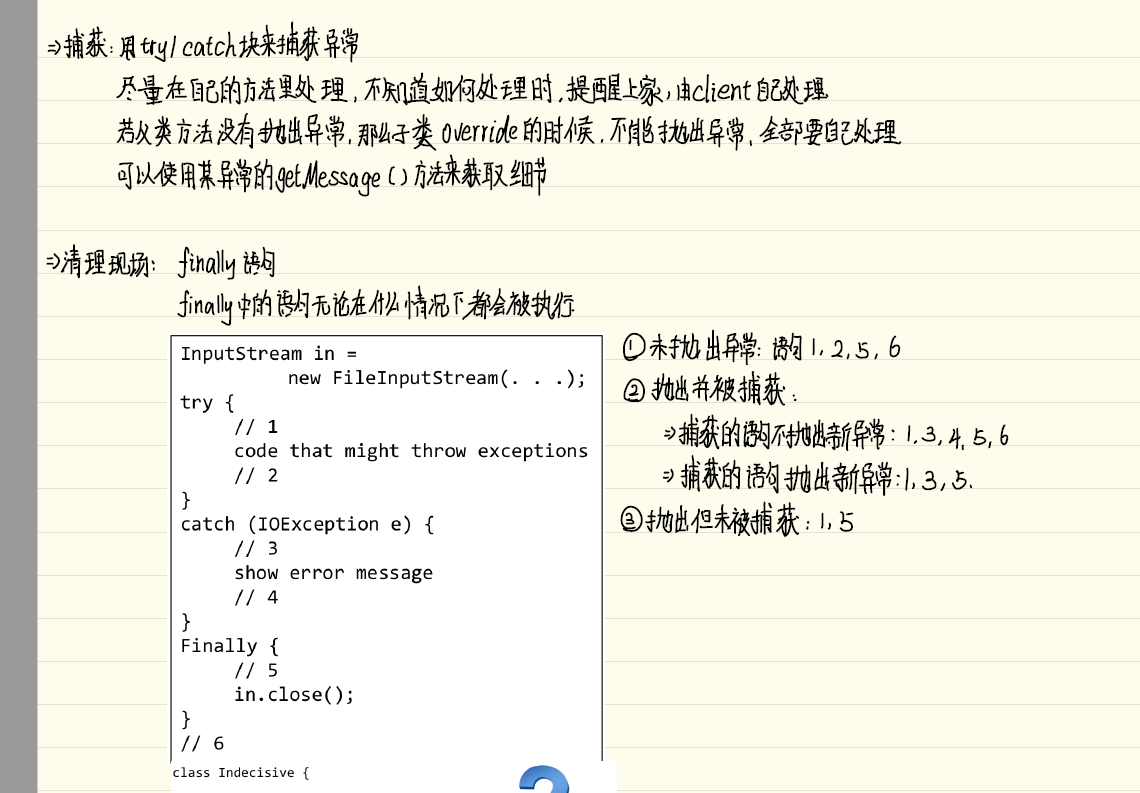 ⇒捕获：用try/catch块来捕获异常
尽量在自己的方法里处理，不知道如何处理时，提醒上家，由client自己处理
若父类方法没有抛出异常，那么子类override的时候，不能抛出异常，全部要自己处理
可以使用某异常的getMessage()方法来获取细节
⇒清理现场： finally语句
finally中的语句无论在什么情况下都会被执行
InputStream in =
new FileInputStream(. . .);
try {
// 1
code that might throw exceptions
// 2
}
catch (IOException e) {
// 3
show error message
// 4
}
Finally {
// 5
in.close();
}
// 6
class Indecisive {
①未抛出异常：语句1, 2, 5, 6
②抛出并被捕获：
⇒捕获的语句不抛出新异常：1, 3, 4, 5, 6
⇒捕获的语句抛出新异常：1, 3, 5.
③抛出但未被捕获：1, 5